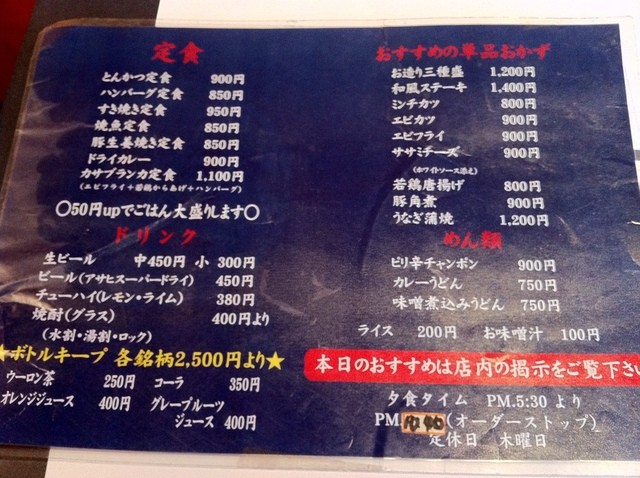 定食
とんかつ定食 900円
ハンバーグ定食 850円
すき焼き定食 950円
焼魚定食 850円
豚生姜焼き定食 850円
ドライカレー 900円
カサブランカ定食 1,100円
(エビフライ+若鶏からあげ+ハンバーグ)
〇50円upでごはん大盛りします〇
ドリンク
生ビール 中450円 小 300円
ビール(アサヒスーパードライ) 450円
チューハイ(レモン・ライム) 380円
焼酎(グラス) 400円より
(水割・湯割・ロック)
★ボトルキープ 各銘柄2,500円より★
ウーロン茶 250円 コーラ 350円
オレンジジュース 400円 グレープルーツ
ジュース 400円
おすすめの単品おかず
お造り三種盛 1,200円
和風ステーキ 1,400円
ミンチカツ 800円
エビカツ 900円
エビフライ 900円
ササミチーズ 900円
(ホワイトソース添え)
若鶏唐揚げ 800円
豚角煮 900円
うなぎ蒲焼 1,200円
めん類
ピリ辛チャンポン 900円
カレーうどん 750円
味噌煮込みうどん 750円
ライス 200円 お味噌汁 100円
本日のおすすめは店内の掲示をご覧下さい
夕食タイム PM.5:30 より
PM. (オーダーストップ)
定休日 木曜日